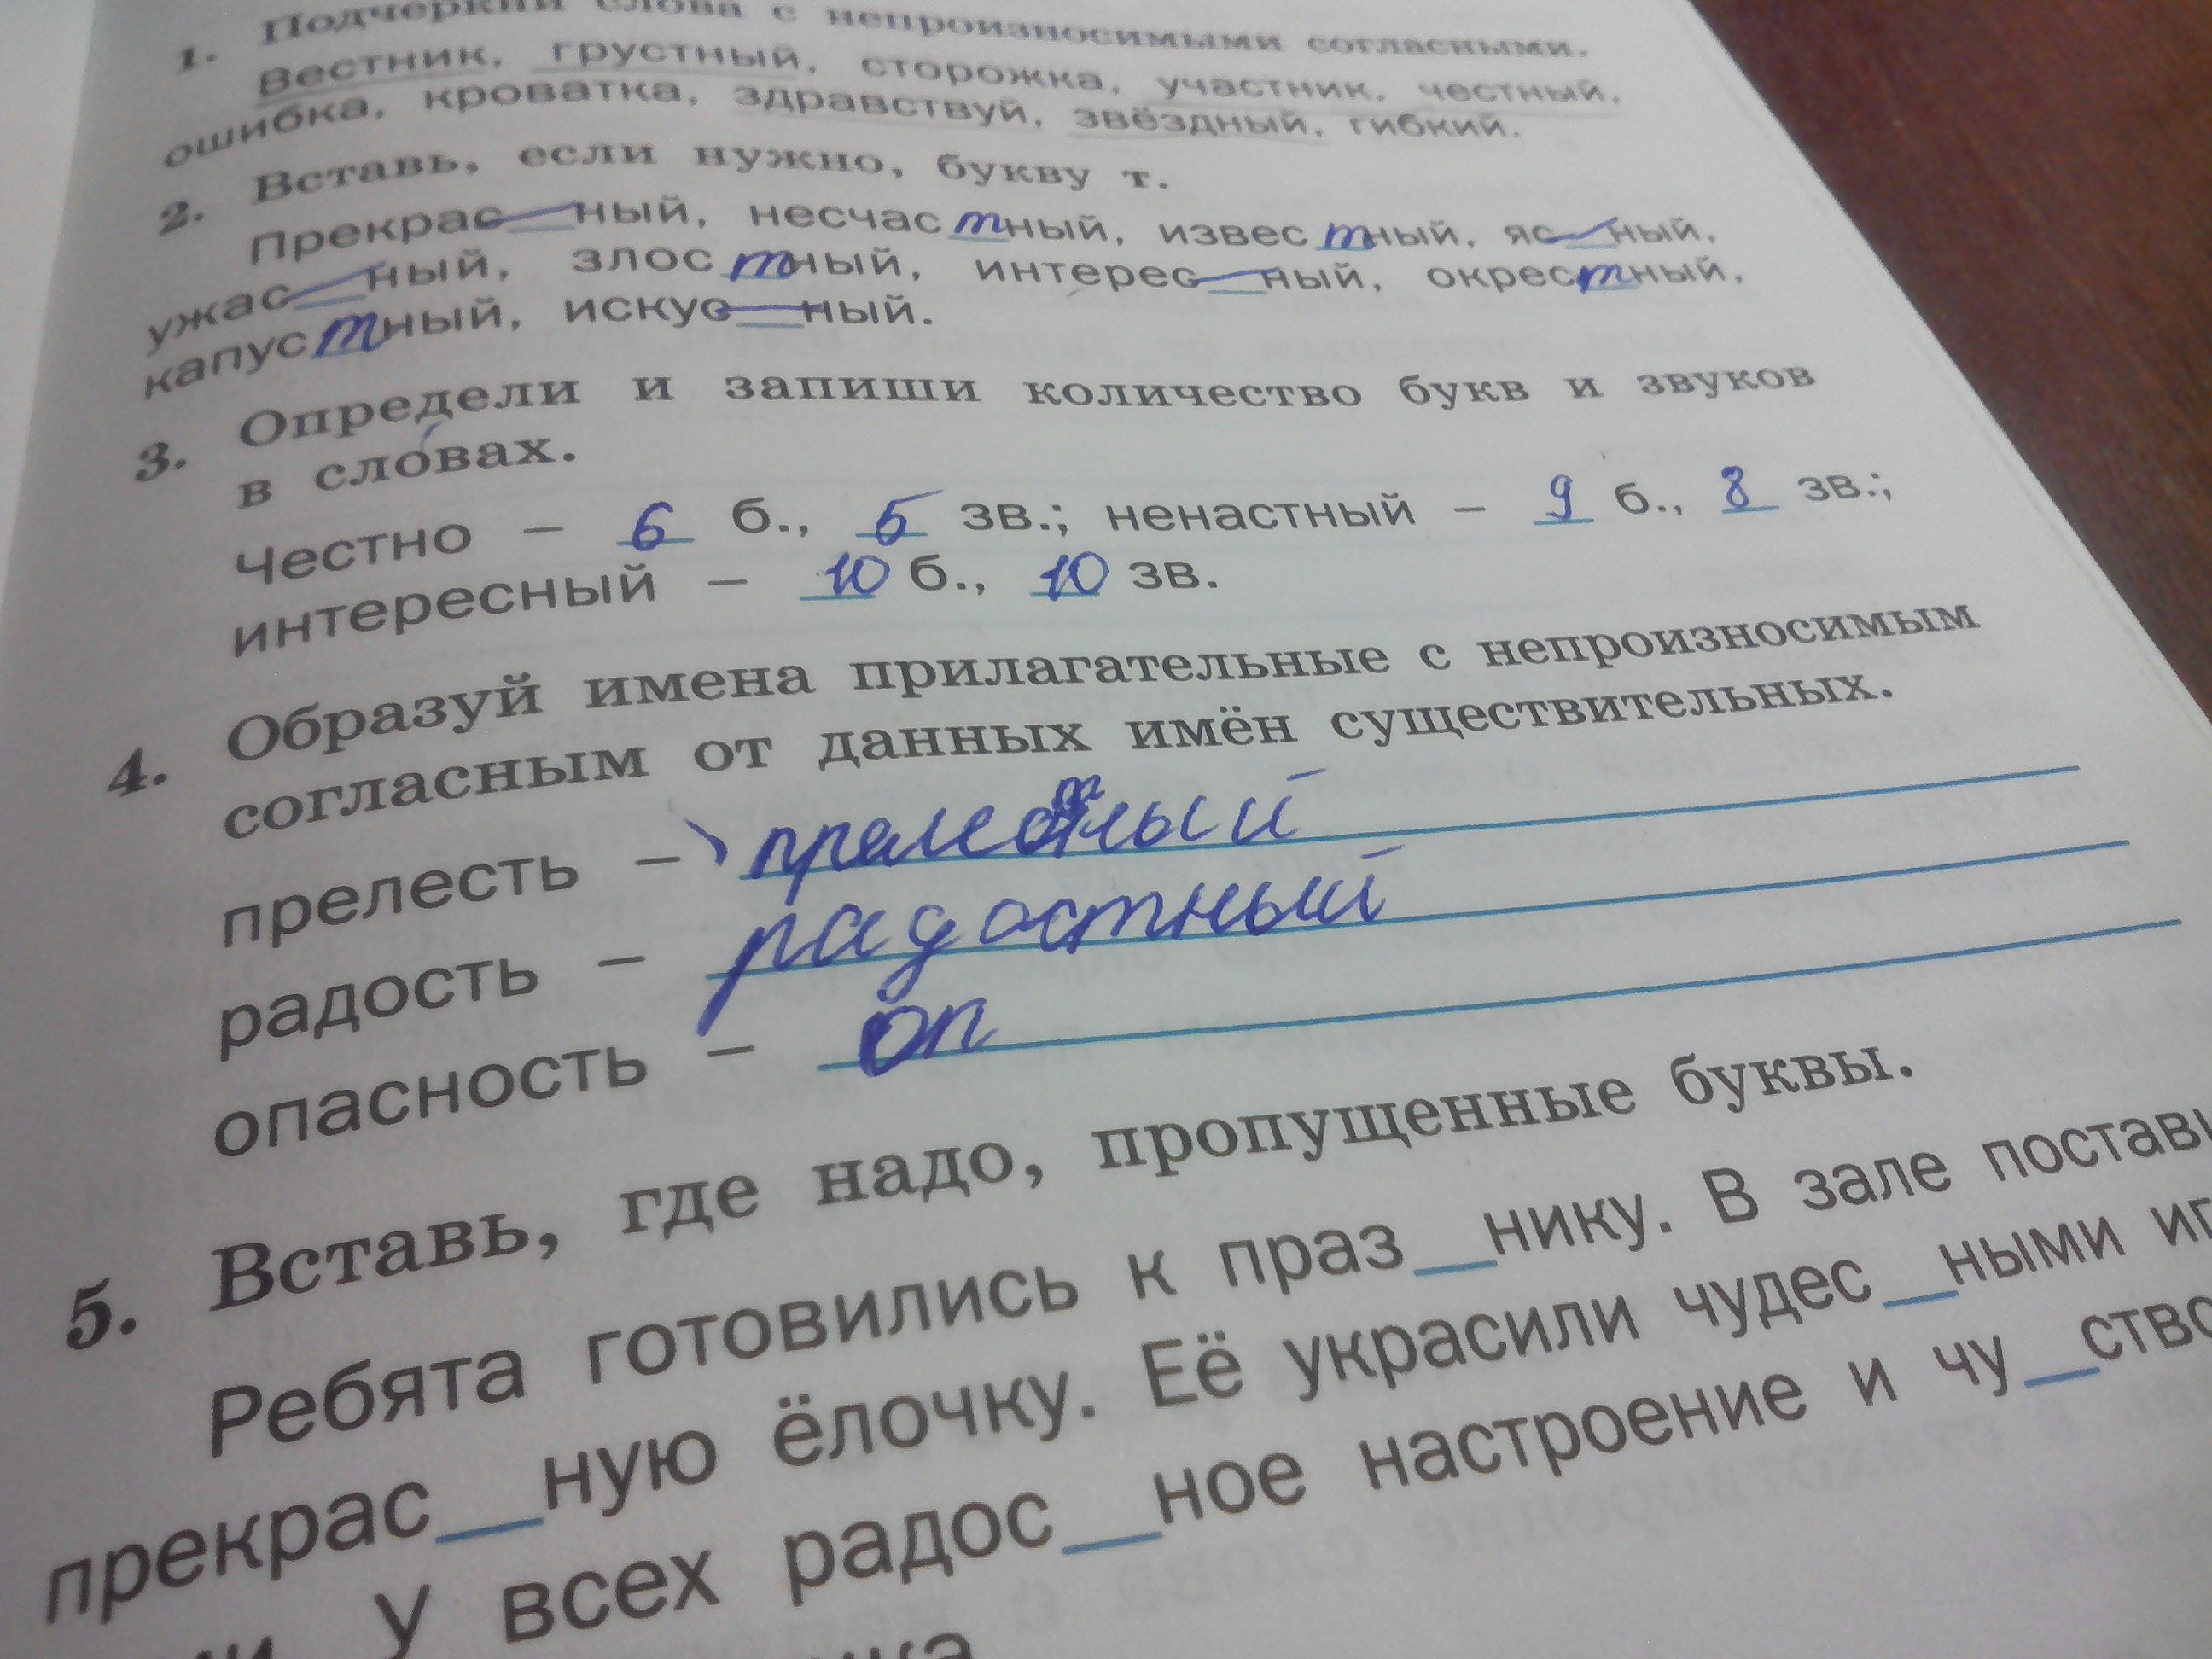 1. Подчеркни слова с непроизносимыми согласными.
Вестник, грустный, сторожка, участник, честный,
ошибка, кроватка, здравствуй, звёздный, гибкий.
2. Вставь, если нужно, букву т.
Прекрас ный, несчастный, известный, яс ный,
ужас ный, злостный, интерес ный, окрестный,
капустный, искус ный.
3. Определи и запиши количество букв и звуков
в словах.
Честно – 6 б., 5 зв.; ненастный – 9 б., 8 зв.;
интересный – 10 б., 10 зв.
4. Образуй имена прилагательные с непроизносимым
согласным от данных имён существительных.
прелесть – прелестный
радость – радостный
опасность – оп
5. Вставь, где надо, пропущенные буквы.
Ребята готовились к праз_нику. В зале постави
прекрас_ную ёлочку. Её украсили чудес_ными иг
и у всех радос_ное настроение и чу_ство